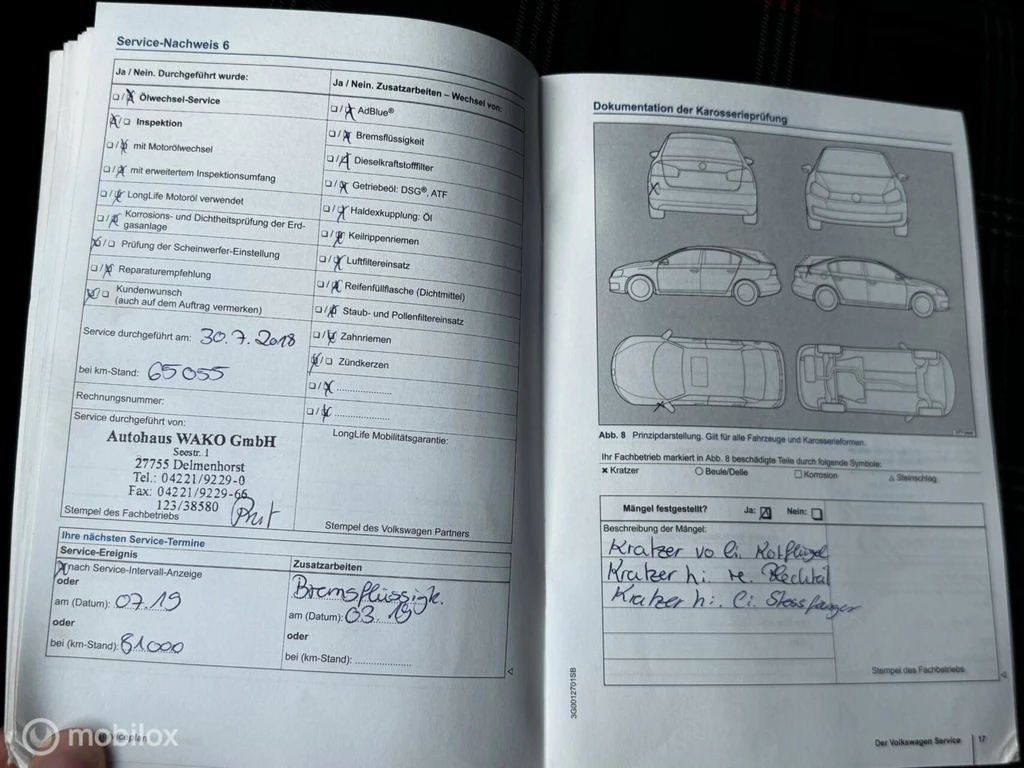 Service-Nachweis 6
Ja / Nein. Durchgeführt wurde:
Ölwechsel-Service
Inspektion
mit Motorölwechsel
mit erweitertem Inspektionsumfang
LongLife Motoröl verwendet
Korrosions- und Dichtheitsprüfung der Erd-
gasanlage
Prüfung der Scheinwerfer-Einstellung
Reparaturempfehlung
Kundenwunsch
(auch auf dem Auftrag vermerken)
Service durchgeführt am: 30.7.2018
bei km-Stand: 65055
Rechnungsnummer:
Service durchgeführt von:
Autohaus WAKO GmbH
Seestr. 1
27755 Delmenhorst
Tel.: 04221/9229-0
Fax: 04221/9229-66
123/38580
Stempel des Fachbetriebs
Ja / Nein. Zusatzarbeiten – Wechsel von:
AdBlue®
Bremsflüssigkeit
Dieselkraftstofffilter
Getriebeöl: DSG®, ATF
Haldexkupplung: Öl
Keilrippenriemen
Luftfiltereinsatz
Reifenfüllflasche (Dichtmittel)
Staub- und Pollenfiltereinsatz
Zahnriemen
Zündkerzen
LongLife Mobilitätsgarantie:
Stempel des Volkswagen Partners
Ihre nächsten Service-Termine
Service-Ereignis
nach Service-Intervall-Anzeige
oder
am (Datum): 07.19
oder
bei (km-Stand): 81000
Zusatzarbeiten
Bremsflüssigk.
am (Datum): 03.19
oder
bei (km-Stand):
Serviceplan
Dokumentation der Karosserieprüfung
Abb. 8 Prinzipdarstellung. Gilt für alle Fahrzeuge und Karosserieformen.
Ihr Fachbetrieb markiert in Abb. 8 beschädigte Teile durch folgende Symbole:
Kratzer Beule/Delle Korrosion Steinschlag
Mängel festgestellt? Ja: Nein:
Beschreibung der Mängel:
Kratzer vo. li. Kotflügel
Kratzer hi. re. Blechteil
Kratzer hi. li. Stossfänger
Stempel des Fachbetriebs
3G0012701SB
Der Volkswagen Service 17
mobilox